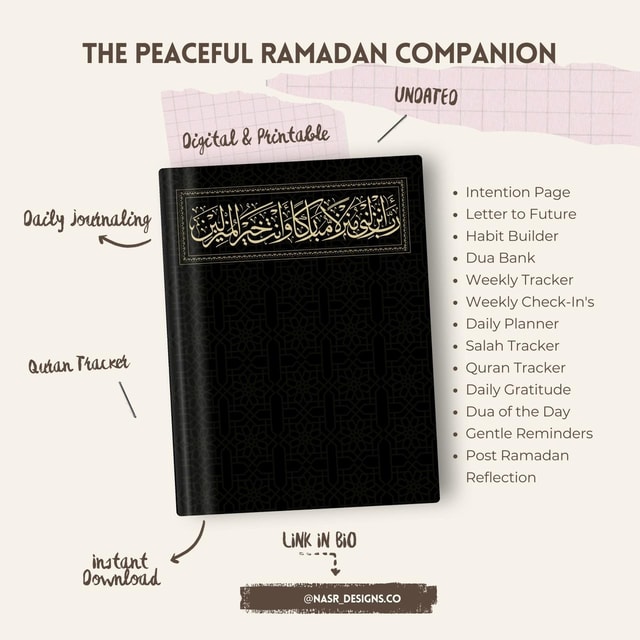 THE PEACEFUL RAMADAN COMPANION
UNDATED
Digital & Printable
رب أنزلني منزلا مباركا وأنت خير المنزلين
Daily journaling
Quran Tracker
instant
Download
Intention Page
Letter to Future
Habit Builder
Dua Bank
Weekly Tracker
Weekly Check-In's
Daily Planner
Salah Tracker
Quran Tracker
Daily Gratitude
Dua of the Day
Gentle Reminders
Post Ramadan
Reflection
LiNK iN BiO
@NASR_DESIGNS.CO